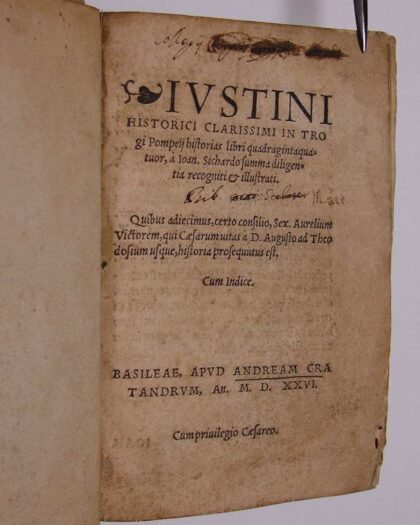 IVSTINI
HISTORICI CLARISSIMI IN TRO
gi Pompeij historias libri quadragintaqua-
tuor, a Ioan. Sichardo summa diligen-
tia recogniti & illustrati.
Bib
Quibus adiecimus, certo consilio, Sex. Aurelium
Victorem, qui Cæsarum uitas a D. Augusto ad Theo
dosium usque, historia prosequutus est.
Cum Indice.
BASILEAE, APVD ANDREAM CRA
TANDRVM, An. M. D. XXVI.
Cum priuilegio Cæsareo.